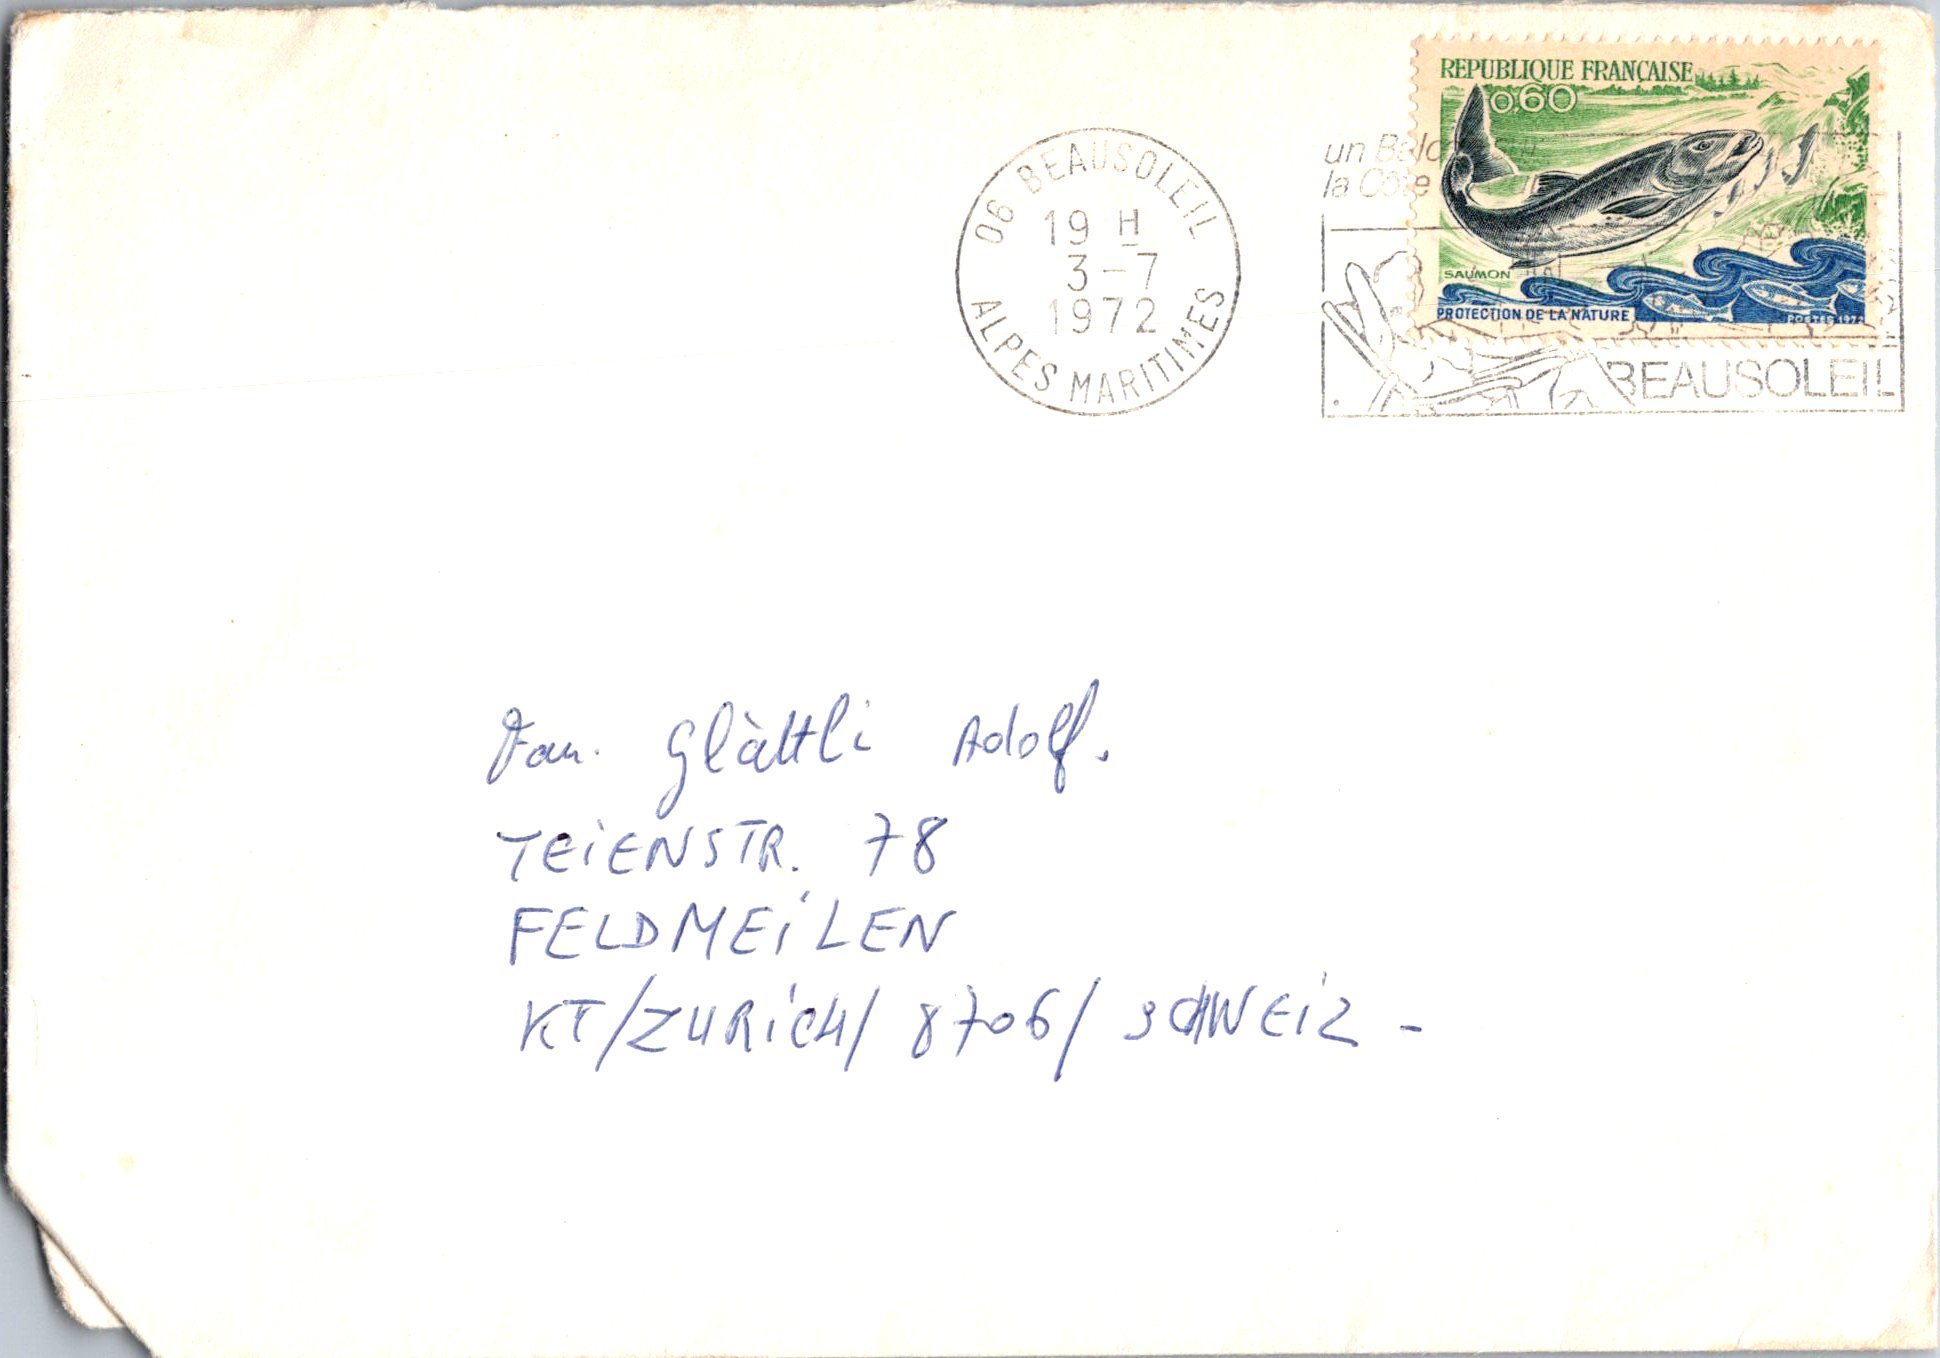 REPUBLIQUE FRANÇAISE
0,60
SAUMON
PROTECTION DE LA NATURE
POSTES 1972
06 BEAUSOLEIL
19 H
3-7
1972
ALPES MARITIMES
un
la Côte
BEAUSOLEIL
Fam. Glàttli Adolf.
TEiENSTR. 78
FELDMEiLEN
KT/ZURiCH/ 8706/ SCHWEiZ -